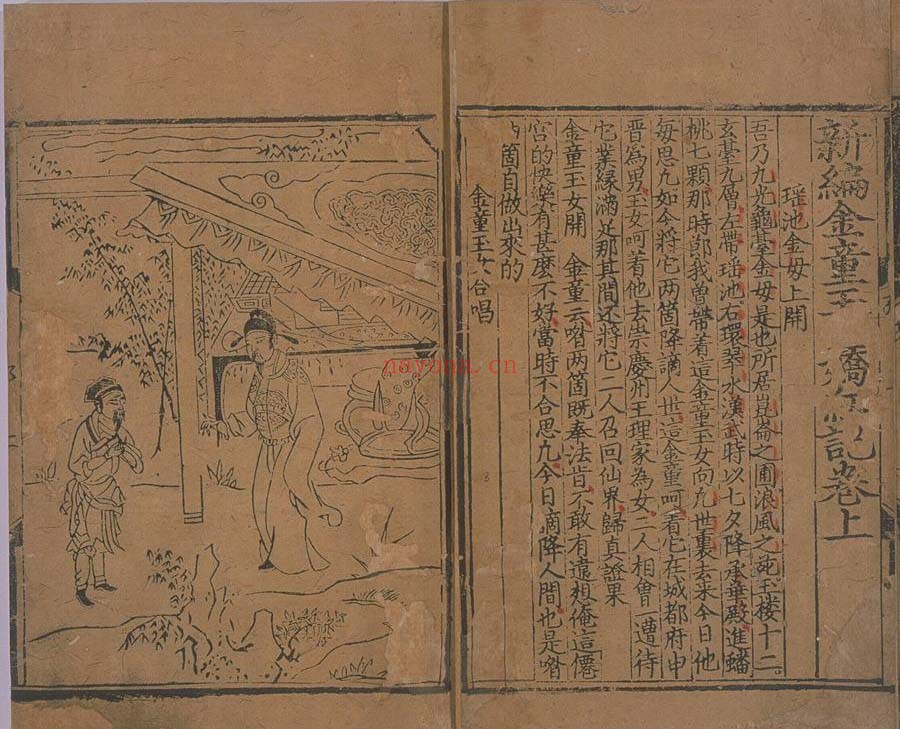 新編金童玉 嬌紅記卷上
瑶池金母上開
吾乃九光龜臺金母是也所居崑崙之圃浪風之苑玉楼十二
玄臺九層左帶瑶池右環翠水漢武時以七夕降承華殿進蟠
桃七顆那時節我曽帶着這金童玉女向凢世裏去来今日他
每思凢如今將它两箇降謫人世這金童呵着它在城都府申
晋爲男玉女呵着他去崇慶州王理家為女二人相會一遭待
它業縁滿足那其間还將它二人召回仙界歸真證果
金童玉女開 金童云喒两箇既奉法旨不敢有違想俺這僊
宫的快樂有甚麽不好當時不合思凢今日謫降人間也是喒
箇自做出來的
金童玉女合唱
nayona.cn